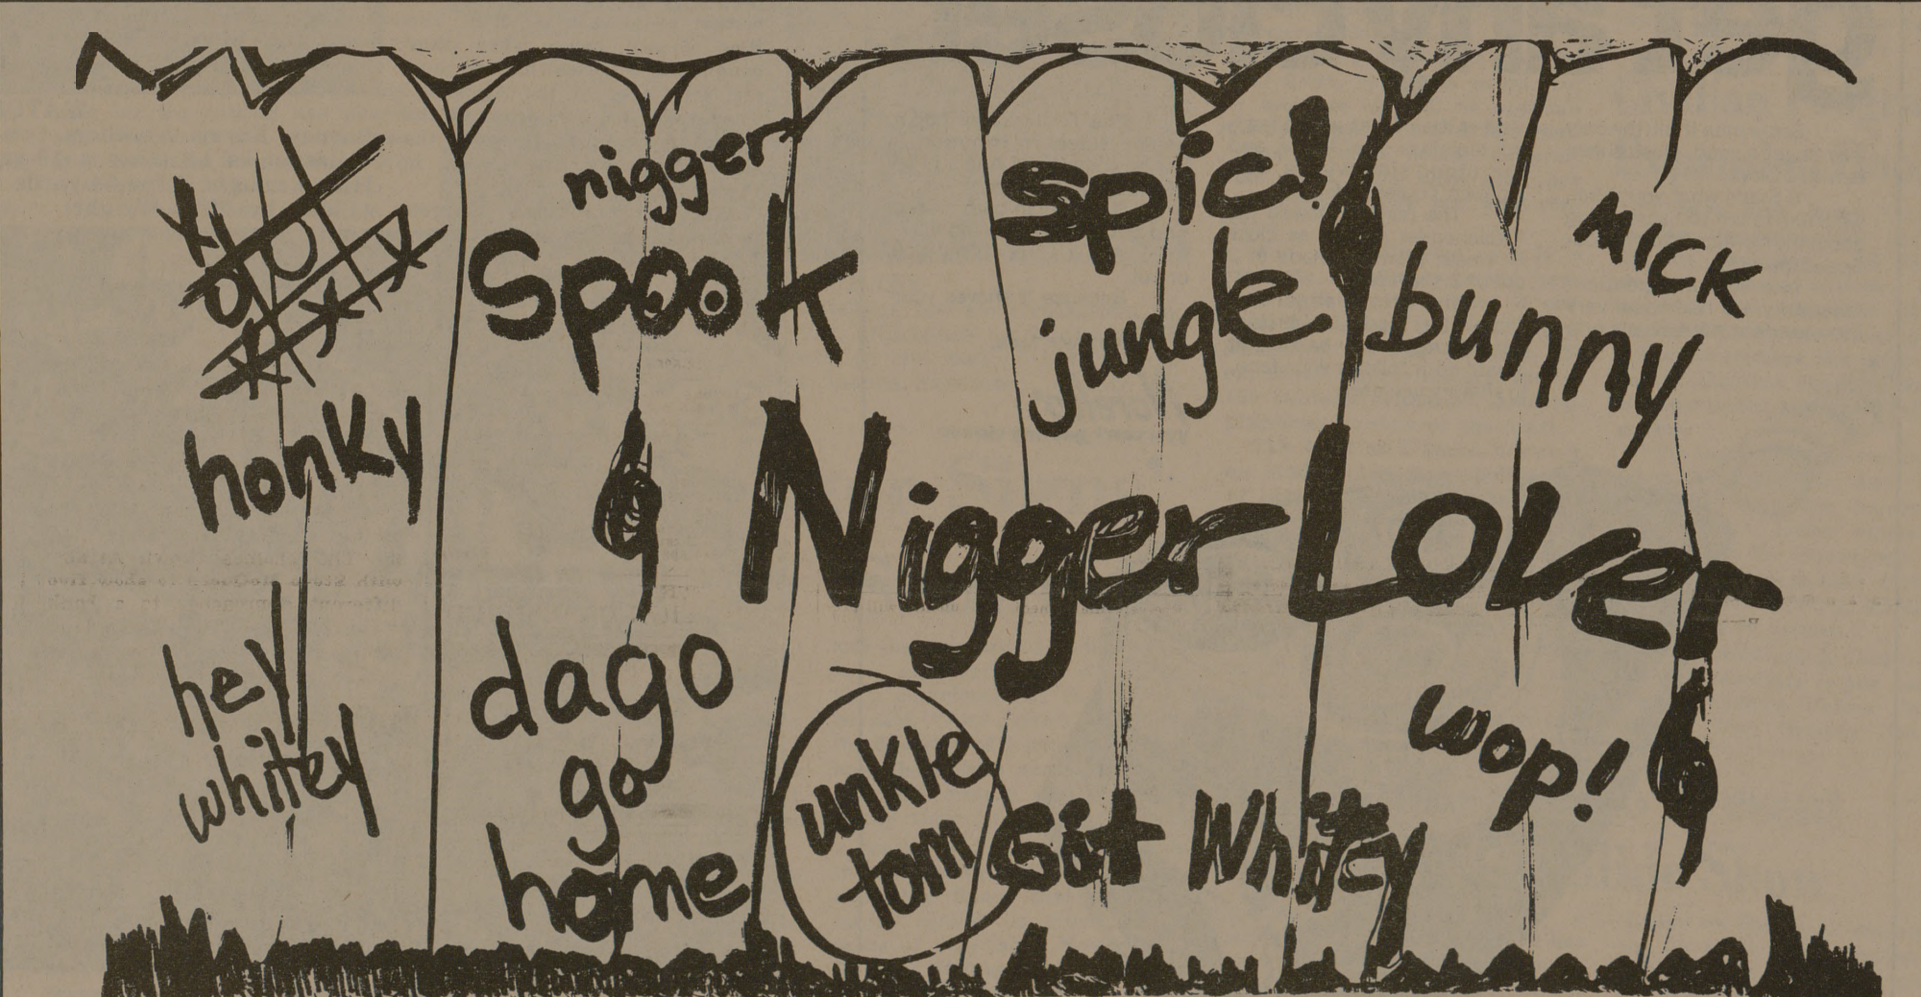 nigger
spic!
MICK
Spook
jungle bunny
honky
Nigger Lover
hey
whitey
dago
go
home
unkle
tom
Git Whitey
wop!